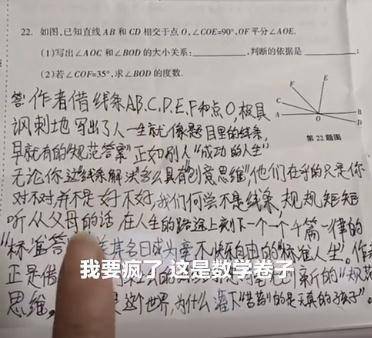 22. 如图,已知直线 AB 和 CD 相交于点 O,∠COE=90°,OF 平分∠AOE.
(1)写出∠AOC 和∠BOD 的大小关系: ,判断的依据是
(2)若∠COF=35°,求∠BOD 的度数.
E
F
C
A
O
B
D
第 22 题图
答:作者借线条AB、C、D、E、F和点O,极具
讽刺地写出了人一生就像题目里的线条,
早就有的"规范答案"正如别人"成功的人生"
无论你这线条解法多么具有创意思维,他们在乎的只是你
对不对并不是好不好,我们何学不是线条,规规矩矩
听从父母的话,在人生的路途上刻下一个一个千篇一律的
"标准答 美其名曰成为 自由的"标准人生".作
正是借 新的"规
思维. 是这个世界,为什么 的是天真的孩子".
我要疯了 这是数学卷子